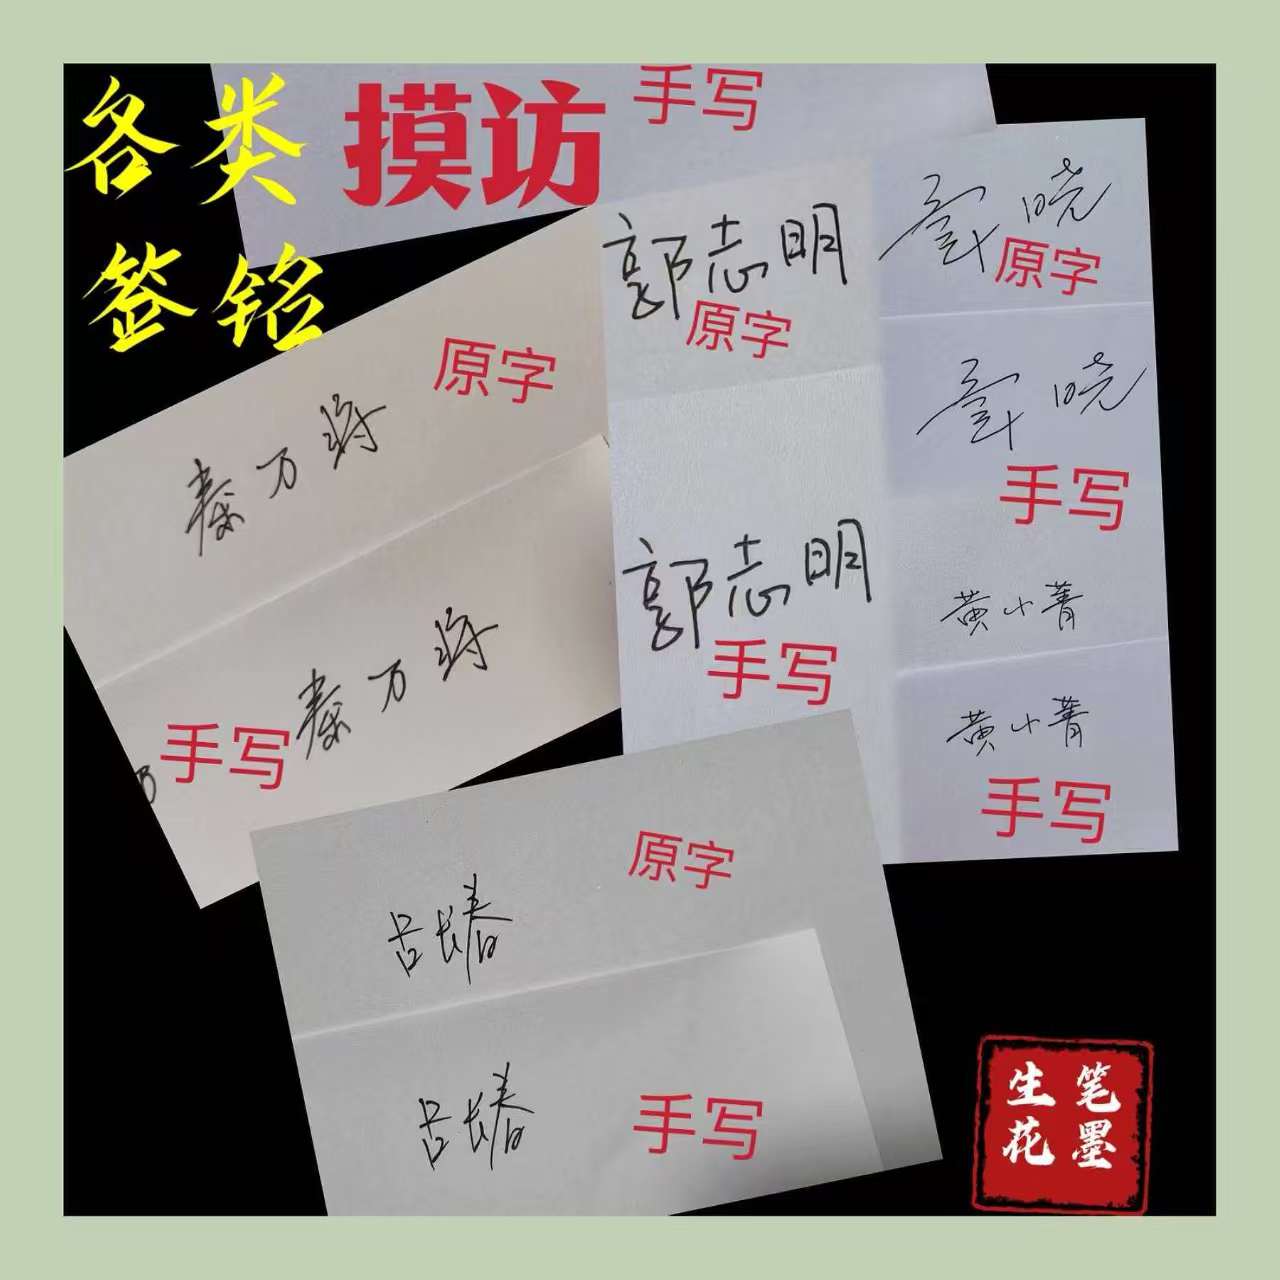 各类
摸访
签铭
手写
原字
秦万将
手写
秦万将
郭志明
原字
郭志明
手写
晓
原字
晓
手写
黄小菁
黄小菁
手写
原字
吕长春
吕长春
手写
笔墨
生花